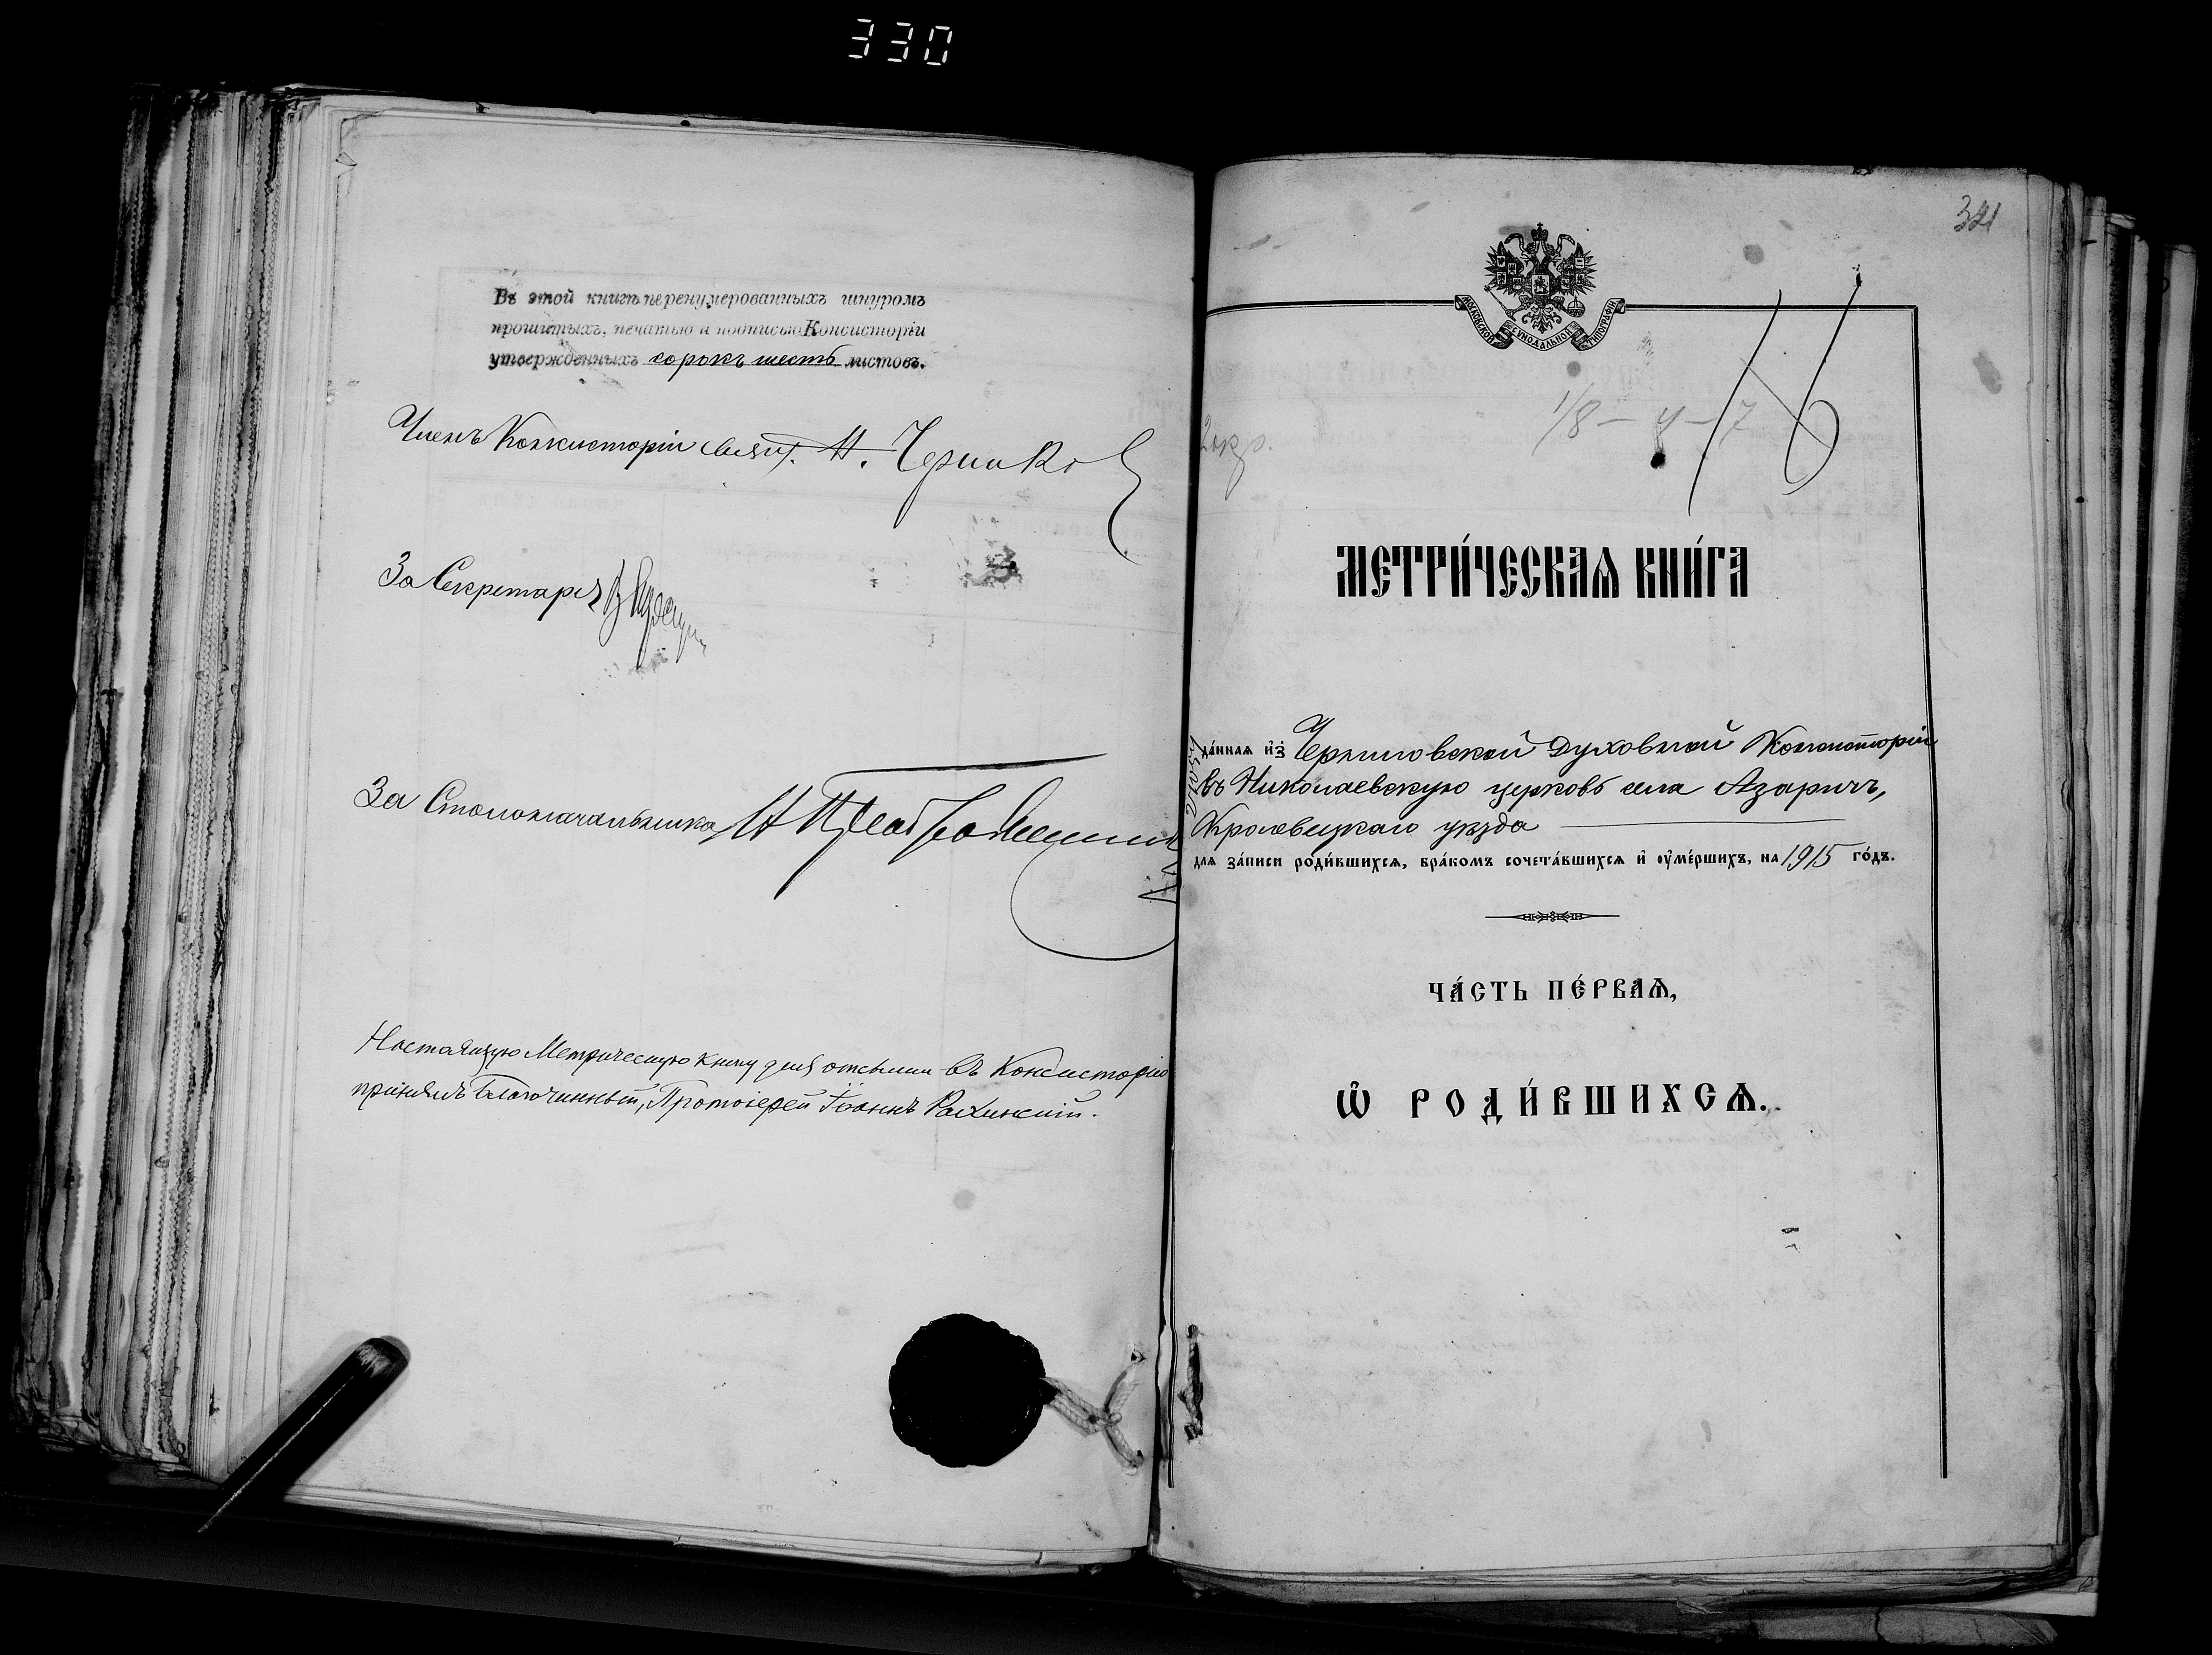 330
Въ этой книгѣ перенумерованныхъ шнуромъ
прошитыхъ, печатью и подписью Консисторіи
утвержденныхъ сорокъ шесть листовъ.
Членъ Консисторіи свящ. Н. Черняков
За Секретаря
За Столоначальника
Настоящую Метрическую книгу для отсылки въ Консисторію
принялъ Благочинный, Протоіерей Іоаннъ Рахинскій.
321
МОСКОВСКОЙ СУНОДАЛЬНОЙ ТИПОГРАФІИ
16
1/8 – 4 – 7
2 окр.
МЕТРИ́ЧЕСКАѦ КНИ́ГА
да́ннаѧ и҆з̾ Черниговской Духовной Консисторіи
въ Николаевскую церковь села Азаричъ,
Кролевецкаго уѣзда
для за́писи роди́вшихсѧ, бра́комъ сочета́вшихсѧ и҆ оу҆ме́ршихъ, на 1915 го́дъ.
ЧА́СТЬ ПЕ́РВАѦ,
Ѽ РОДИ́ВШИХСѦ.